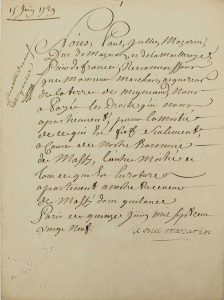 15 Juin 1729
Nous, Paul, Jules, Mazarin,
Duc de Mazarin, et de la Meilleraye
Pair de france, Reconnoissons
que Monsieur Marchais, acquereur
de la terre de Mignaux Nous
a Payé les droits qui nous
apartiennent, pour la moitie
de ce qui En fief seulement,
a Cause de nostre Baronnie
de Massy, l'autre moitié et
tout ce qui En roture
apartenant a nostre Receveur
de Massy dont quittance
Paris ce quinze Juin mil sept cent
vingt Neuf
le duc mazarin